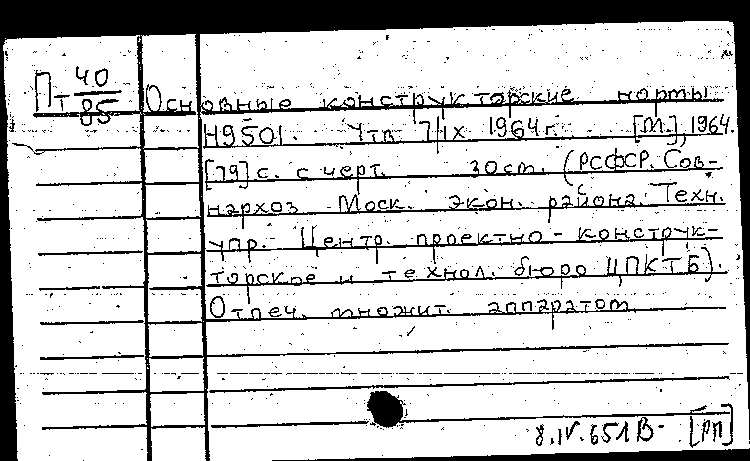 Пт 40/85
Основные конструкторские нормы
Н9501. Утв. 7/IX 1964г. [М.], 1964.
[79] с. с черт. 30см. (РСФСР. Сов-
нархоз Моск. экон. района. Техн.
упр. Центр. проектно-конструк-
торское и технол. бюро ЦПКТБ).
Отпеч. множит. аппаратом
8.IV.65 1В- [РП]